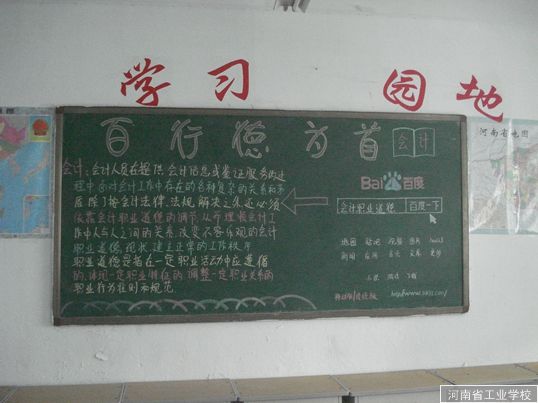 学习 园地
百行德为首
会计
会计:会计人员在提供会计信息或鉴证服务的过
程中面对会计工作中存在的各种复杂的关系和矛
盾除了按会计法律、法规解决之外还必须
依靠会计职业道德的调节,从而理顺会计工
作中人与人之间的关系,改变不容乐观的会计
职业道德现状建立正常的工作秩序
职业道德是指在一定职业活动中应遵循
的、体现一定职业特征的、调整一定职业关系的
职业行为准则和规范
Bai 百度
会计职业道德 百度一下
河南省地图
http://www.
河南省工业学校